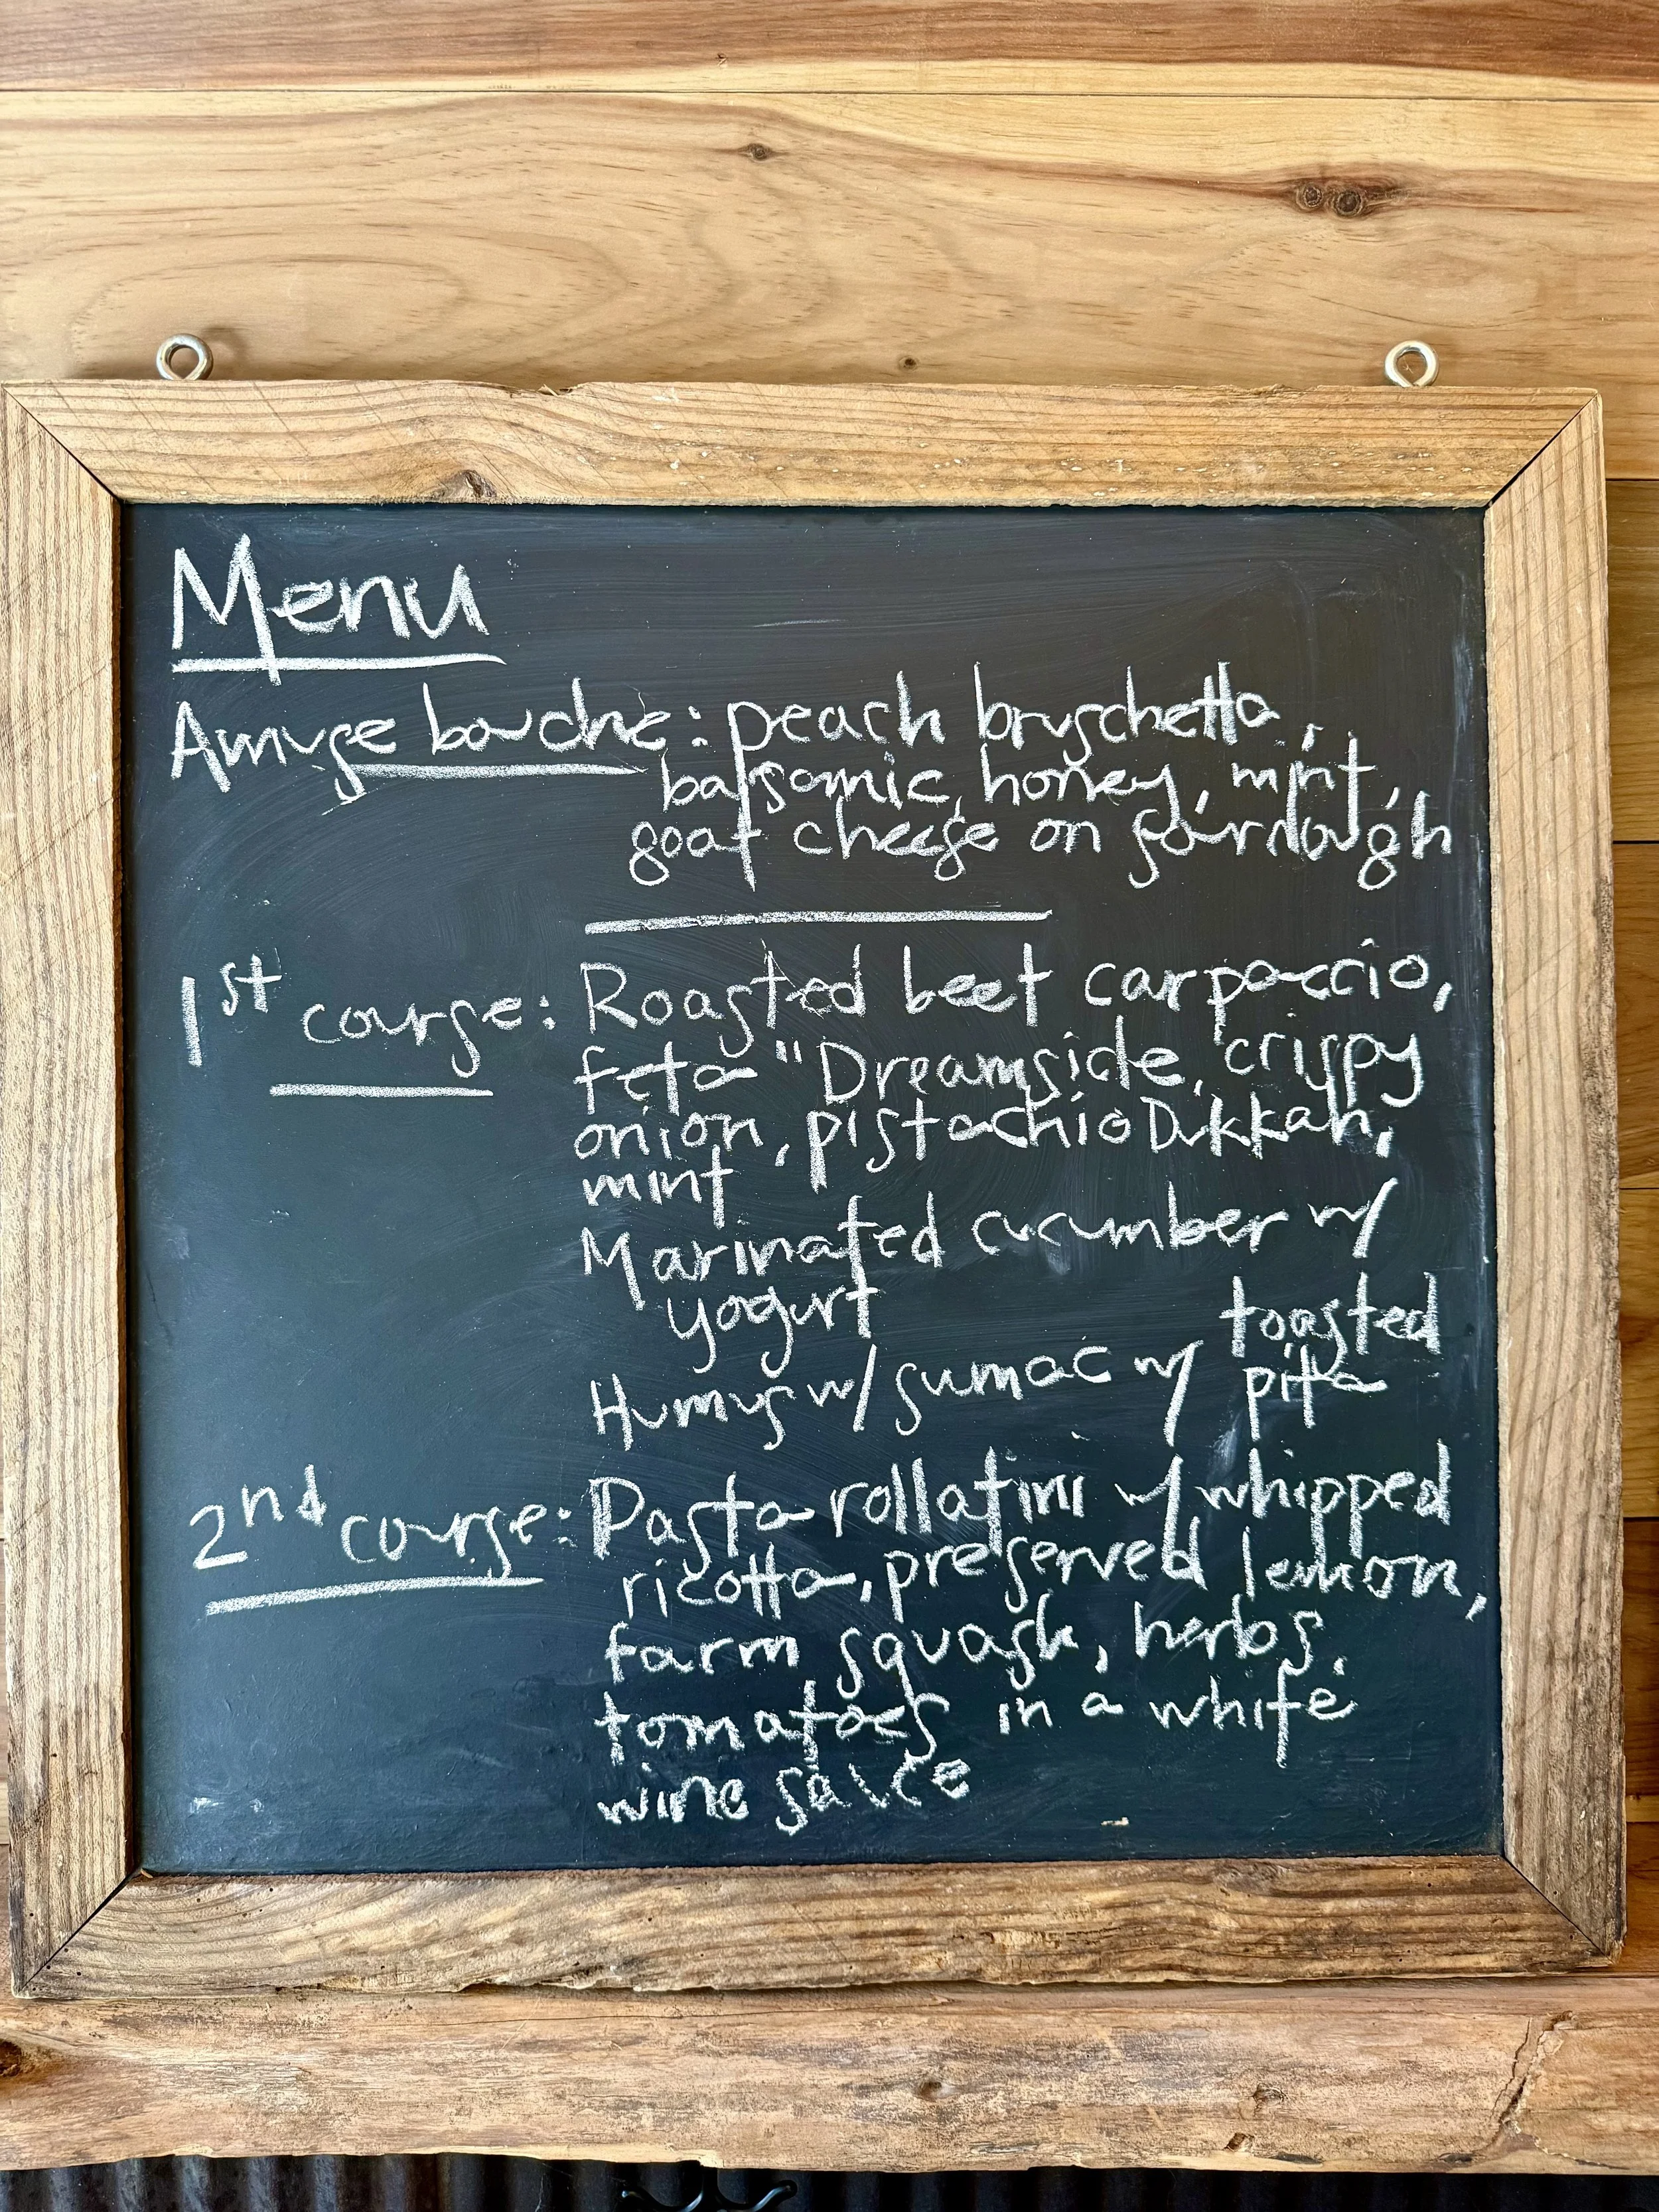 Menu
Amuse bouche: peach bruschetta,
balsamic, honey, mint,
goat cheese on sourdough
1st course: Roasted beet carpaccio,
feta "Dreamside, crispy
onion, pistachio Dukkah,
mint
Marinated cucumber w/
yogurt
Humus w/ sumac w/ toasted
pita
2nd course: Pasta rollatini w/ whipped
ricotta, preserved lemon,
farm squash, herbs,
tomatoes in a white
wine sauce